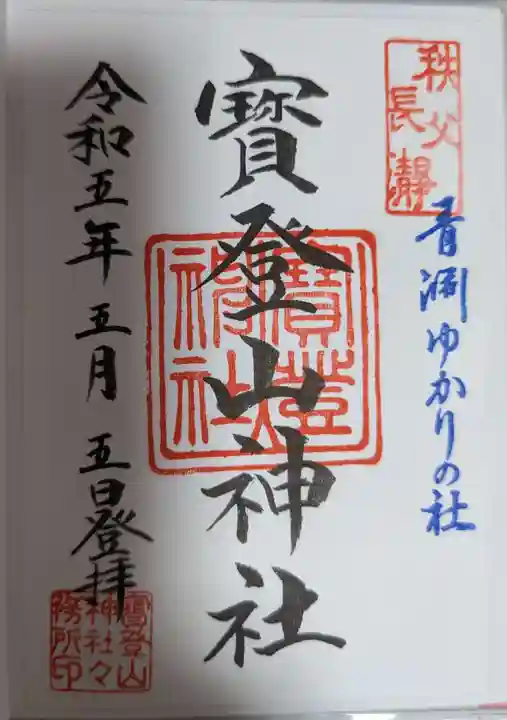 秩父
長瀞
青渊ゆかりの社
寳登山神社
寳登山
神社
令和五年五月五日登拝
寳登山
神社々
務所印